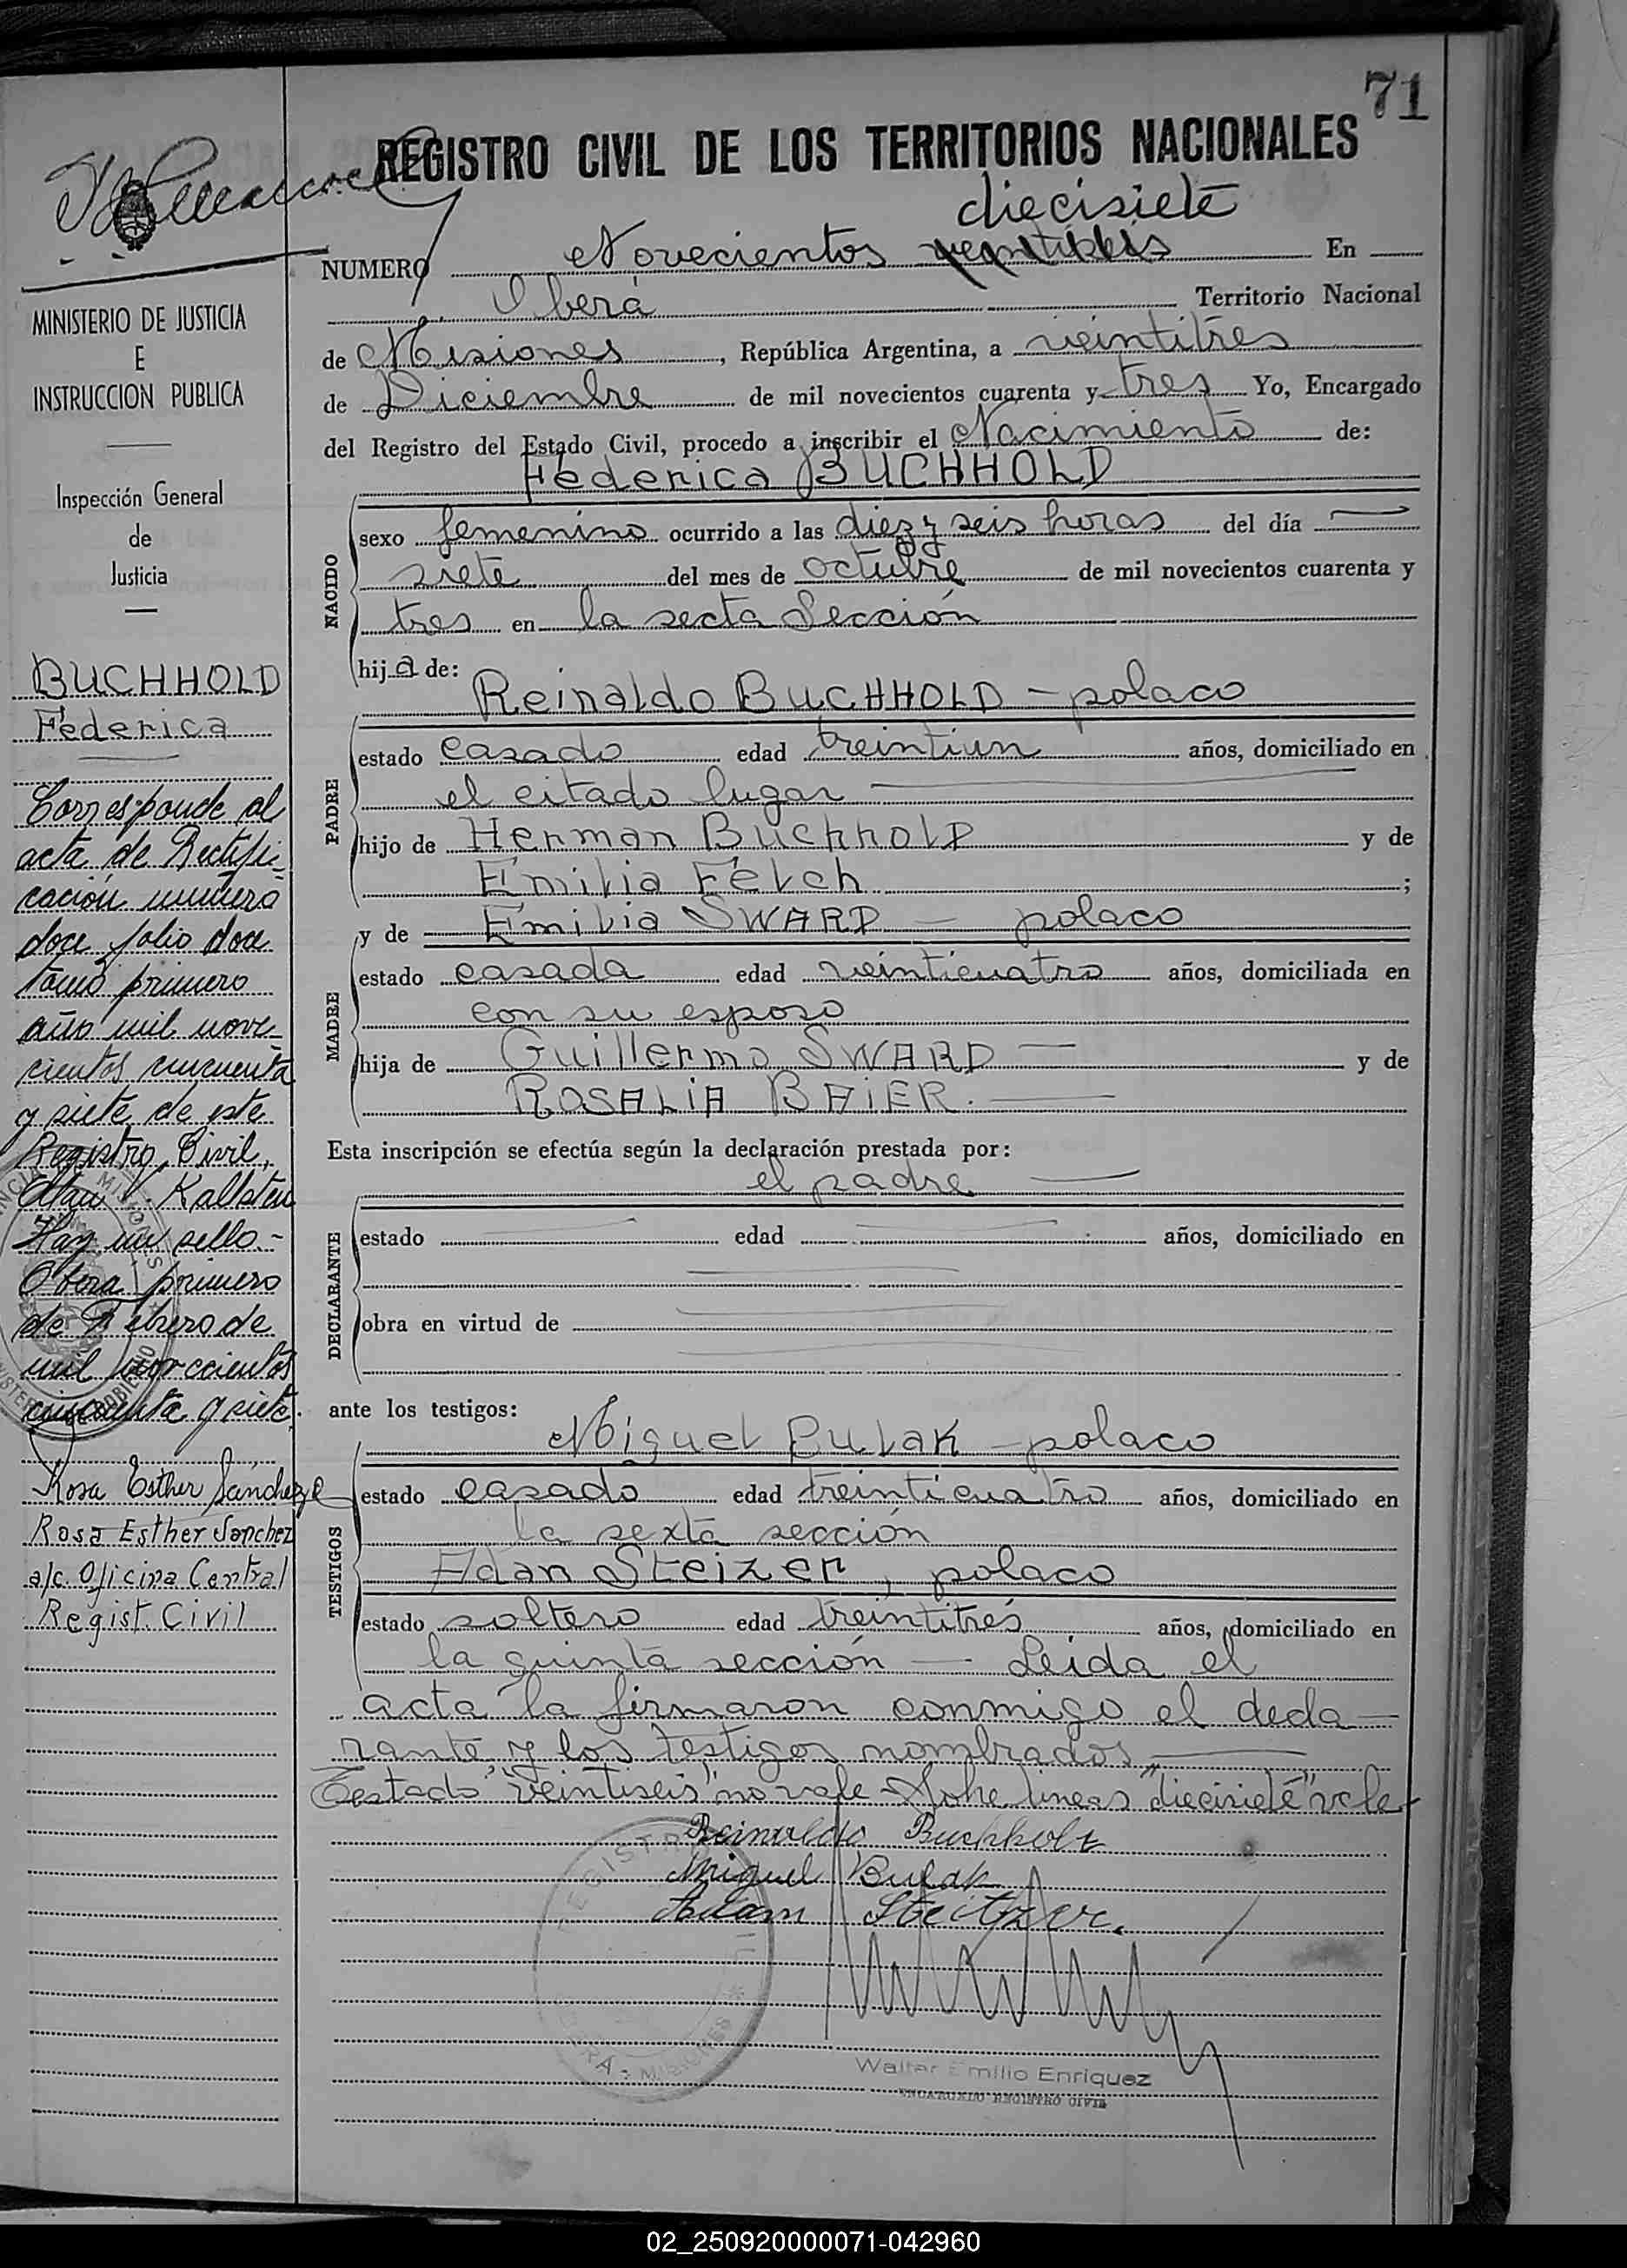 71
REGISTRO CIVIL DE LOS TERRITORIOS NACIONALES
diecisiete
NUMERO Novecientos veintiseis En
Oberá Territorio Nacional
de Misiones, República Argentina, a veintitres
de Diciembre de mil novecientos cuarenta y tres Yo, Encargado
del Registro del Estado Civil, procedo a inscribir el Nacimiento de:
Federica BUCHHOLD
NACIDO
sexo femenino ocurrido a las diez y seis horas del día
siete del mes de octubre de mil novecientos cuarenta y
tres en la secta Sección
hija de:
Reinaldo BUCHHOLD - polaco
PADRE
estado casado edad treintiun años, domiciliado en
el citado lugar
hijo de Herman Buchhold y de
Emilia Felch ;
y de Emilia SWARD - polaco
MADRE
estado casada edad veinticuatro años, domiciliada en
con su esposo
hija de Guillermo SWARD y de
ROSALIA BAIER.
Esta inscripción se efectúa según la declaración prestada por:
el padre
DECLARANTE
estado edad años, domiciliado en
obra en virtud de
ante los testigos:
Miguel Bulak - polaco
TESTIGOS
estado casado edad treinticuatro años, domiciliado en
la sexta sección
Adan Steizer, polaco
estado soltero edad treintitrés años, domiciliado en
la quinta sección - Leida el
acta la firmaron conmigo el decla-
rante y los testigos nombrados
Testado "veintiseis" no vale - Sobre lineas "diecisiete" vale-
Reinaldo Buchholz
Miguel Bulak
Adam Steitzer.
REGISTRO
MISIONES
Walter Emilio Enriquez
ENCARGADO REGISTRO CIVIL
MINISTERIO DE JUSTICIA
E
INSTRUCCION PUBLICA
Inspección General
de
Justicia
BUCHHOLD
Federica
Corresponde al
acta de Rectifi-
cación número
doce folio doce
tomo primero
año mil nove-
cientos cincuenta
y siete de este
Registro Civil,
Olga V. Kallsten
Hay un sello.-
Oberá primero
de Febrero de
mil novecientos
cincuenta y siete.
Rosa Esther Sánchez
Rosa Esther Sanchez
a/c. Oficina Central
Regist. Civil
02_250920000071-042960